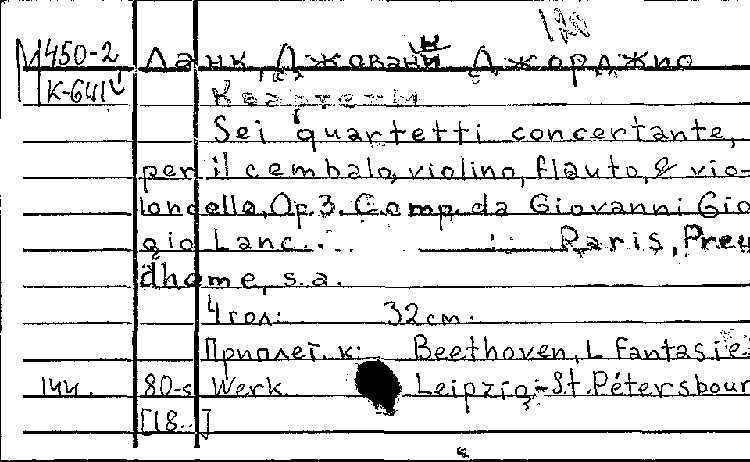 120
М450-2 Ланк, Джованни Джорджио
К-641 Квартеты
Sei quartetti concertante,
per il cembalo, violino, flauto, & vio-
loncello, Op.3. Comp. da Giovanni Gio
gio Lanc. Paris, Preu
dhome, s.a.
4 гол. 32 см.
Приплет. к: Beethoven, L Fantasie
144. 80-s Werk. Leipzig-St. Pétersbour
[18..]